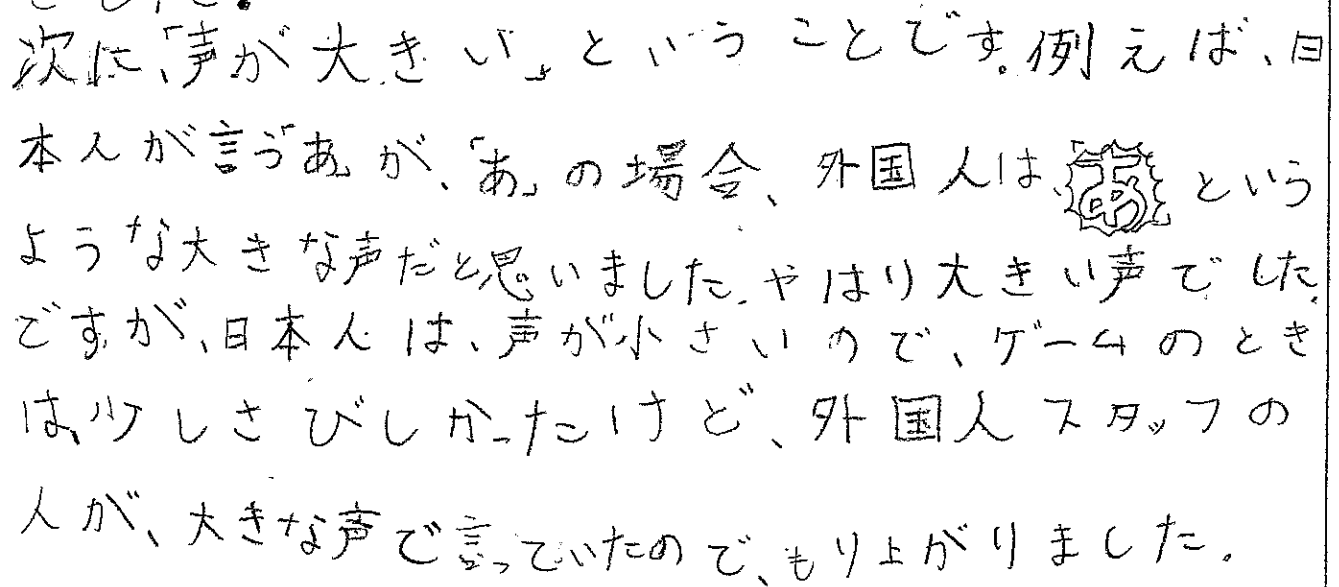 次に、「声が大きい」ということです。例えば、日
本人が言う「あ」が、「あ」の場合、外国人は、「あ」という
ような大きな声だと思いました。やはり大きい声でした。
ですが、日本人は、声が小さいので、ゲームのとき
は、少しさびしかったけど、外国人スタッフの
人が、大きな声で言っていたので、もり上がりました。